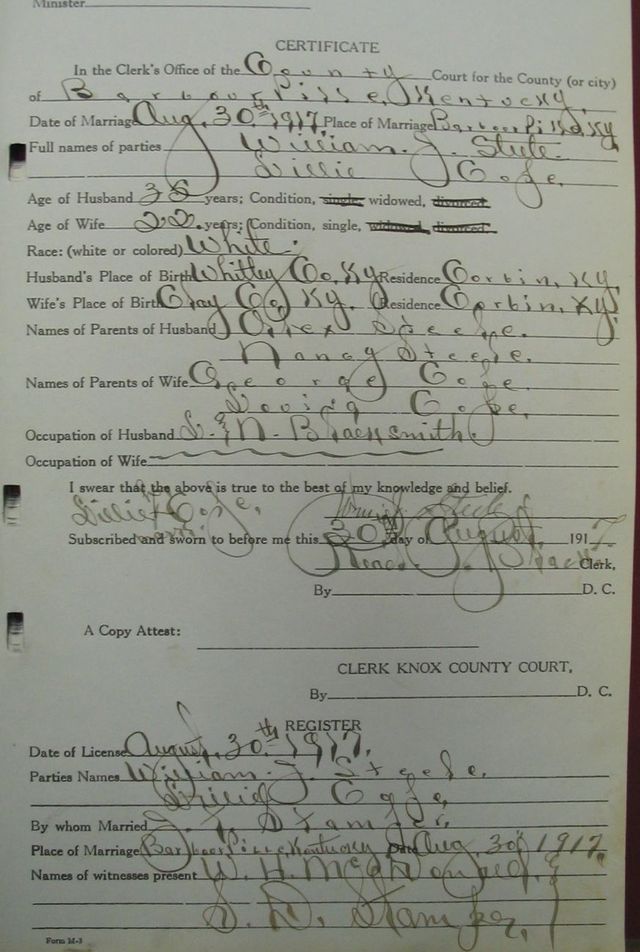 Minister
CERTIFICATE
In the Clerk's Office of the County Court for the County (or city)
of Barbourville, Kentucky,
Date of Marriage Aug, 30th 1917 Place of Marriage Barbourville Ky
Full names of parties William. J. Steele.
Lillie Cope.
Age of Husband years; Condition, single, widowed, divorced
Age of Wife 22. years; Condition, single, widowed, divorced
Race: (white or colored) White.
Husband's Place of Birth Whitley Co. Ky Residence Corbin, Ky,
Wife's Place of Birth Clay Co Ky. Residence Corbin, Ky
Names of Parents of Husband Steele.
Nancy Steele.
Names of Parents of Wife George Cope
Cope,
Occupation of Husband L. & N. Blacksmith.
Occupation of Wife
I swear that the above is true to the best of my knowledge and belief.
Lillie Cope,
Subscribed and sworn to before me this 30 day of August, 1917
Clerk,
By D. C.
A Copy Attest:
CLERK KNOX COUNTY COURT,
By D. C.
REGISTER
Date of License August, 30th 1917.
Parties Names William. J. Steele.
Lillie Cope,
By whom Married Stamper.
Place of Marriage Barbourville, Kentucky Aug, 30th 1917
Names of witnesses present W. H. McDonald, &
Stamper,
Form M-3